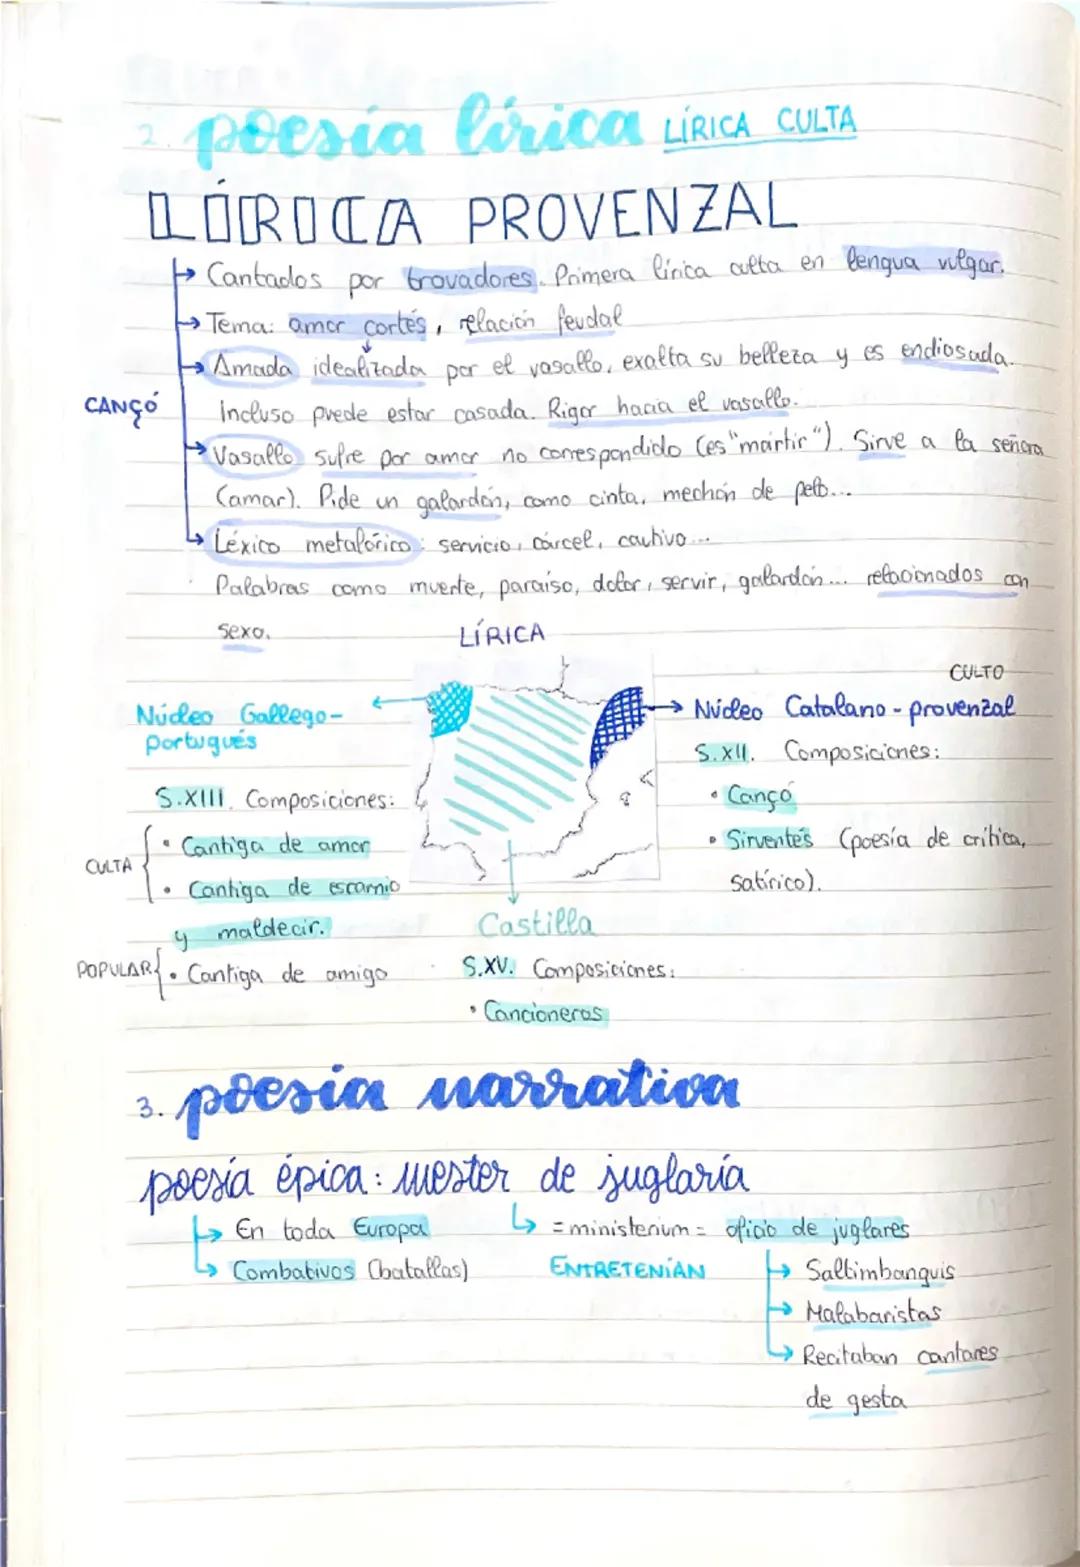 2. poesía lírica LÍRICA CULTA
LÍRICA PROVENZAL
Cantados por trovadores. Primera lírica culta en lengua vulgar.
Tema: amor cortés, relación feudal
Amada idealizada por el vasallo, exalta su belleza y es endiosada.
CANÇÓ
Incluso puede estar casada. Rigor hacia el vasallo.
Vasallo sufre por amor no correspondido (es "mártir"). Sirve a la señora
(amar). Pide un galardón, como cinta, mechón de pelo...
Léxico metafórico: servicio, cárcel, cautivo...
Palabras como muerte, paraíso, dolor, servir, galardón... relacionados con
sexo.
LÍRICA
Núcleo Gallego-
portugués
S.XIII. Composiciones:
CULTA
• Cantiga de amor
• Cantiga de escarnio
y maldecir.
POPULAR
• Cantiga de amigo
CULTO
Núcleo Catalano-provenzal
S.XII. Composiciones:
• Cançó
• Sirventés (poesía de crítica,
satírico).
Castilla
S.XV. Composiciones:
• Cancioneros
3. poesía narrativa
poesía épica: mester de juglaría
En toda Europa
Combativos (batallas)
= ministerium = oficio de juglares
ENTRETENÍAN
Saltimbanquis
Malabaristas
Recitaban cantares
de gesta